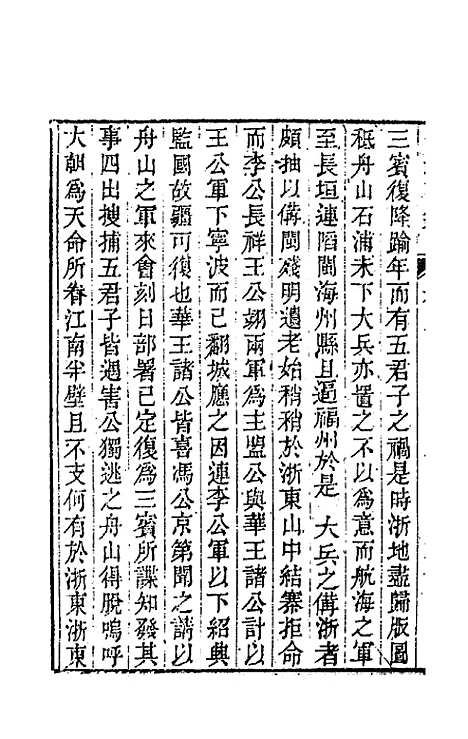 三賓復降踰年而有五君子之禍是時浙地盡歸版圖
秪舟山石浦未下大兵亦置之不以為意而航海之軍
至長垣連䧟閩海州縣且逼福州於是 大兵之備浙者
頗抽以備閩殘明遺老始稍稍於浙東山中結寨拒命
而李公長祥王公翊兩軍為主盟公與華王諸公計以
王公軍下寧波而己翻城應之因連李公軍以下紹興
監國故疆可復也華王諸公皆喜馮公京第聞之請以
舟山之軍來會刻日部署已定復為三賓所諜知發其
事四出搜捕五君子皆遇害公獨逃之舟山得脫嗚呼
大朝為天命所眷江南半壁且不支何有於浙東浙東